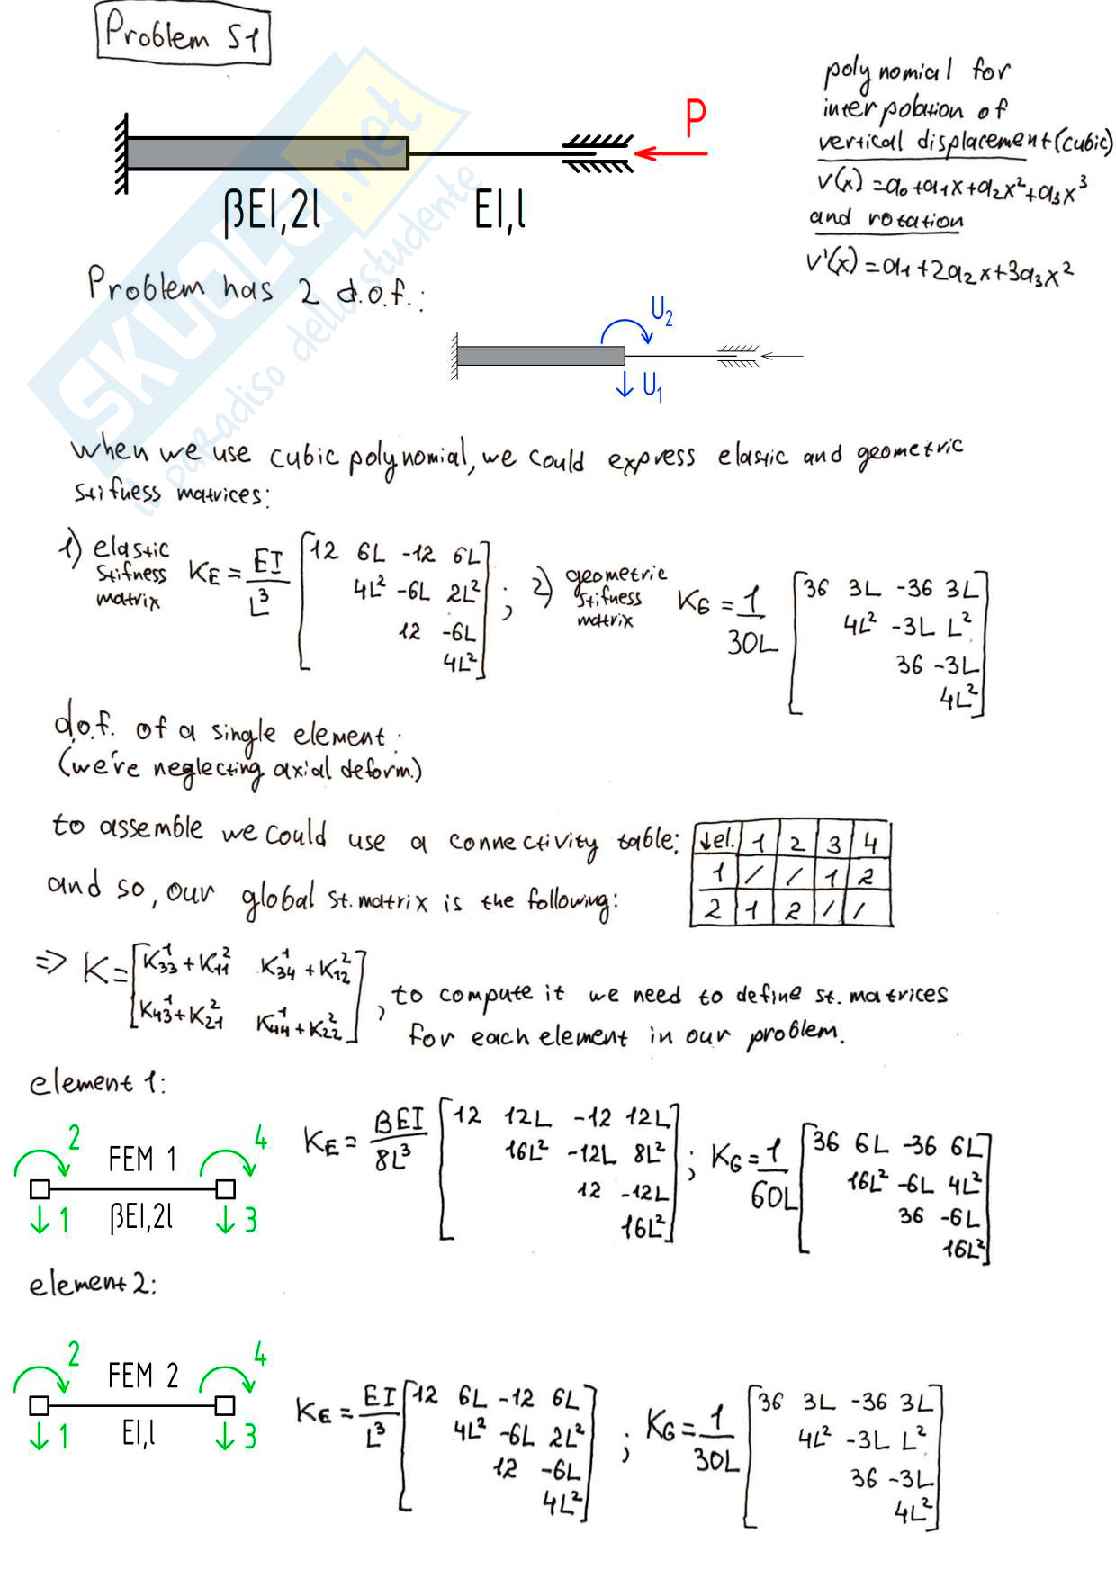 Problem S1
polynomial for
interpolation of
vertical displacement (cubic)
v(x) = a₀+a₁x+a₂x²+a₃x³
and rotation
v'(x) = a₁+2a₂x+3a₃x²
P
βEI,2l EI,l
Problem has 2 d.o.f.:
U₂
U₁
SKUOLA.net
il paradiso dello studente
when we use cubic polynomial, we could express elastic and geometric
stifness matrices:
1) elastic stifness matrix K_E = EI/L³
12 6L -12 6L
4L² -6L 2L²
12 -6L
4L²
; 2) geometric stifness matrix K_G = 1/30L
36 3L -36 3L
4L² -3L L²
36 -3L
4L²
d.o.f. of a single element:
(we're neglecting axial deform.)
to assemble we could use a connectivity table:
↓el. 1 2 3 4
1 / / 1 2
2 1 2 / /
and so, our global st. matrix is the following:
=> K = [K¹₃₃+K²₁₁ K¹₃₄+K²₁₂
K¹₄₃+K²₂₁ K¹₄₄+K²₂₂]
, to compute it we need to define st. matrices
for each element in our problem.
element 1:
2 4
FEM 1
1 βEI,2l 3
K_E = βEI/8L³
12 12L -12 12L
16L² -12L 8L²
12 -12L
16L²
; K_G = 1/60L
36 6L -36 6L
16L² -6L 4L²
36 -6L
16L²
element 2:
2 4
FEM 2
1 EI,l 3
K_E = EI/L³
12 6L -12 6L
4L² -6L 2L²
12 -6L
4L²
; K_G = 1/30L
36 3L -36 3L
4L² -3L L²
36 -3L
4L²